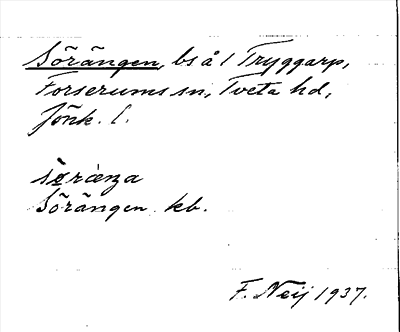 Sörängen, bs å 1 Tryggarp,
Forserums sn, Tveta hd,
Jönk. l.
söræŋa
Sörängen kb.
F. Neij 1937.